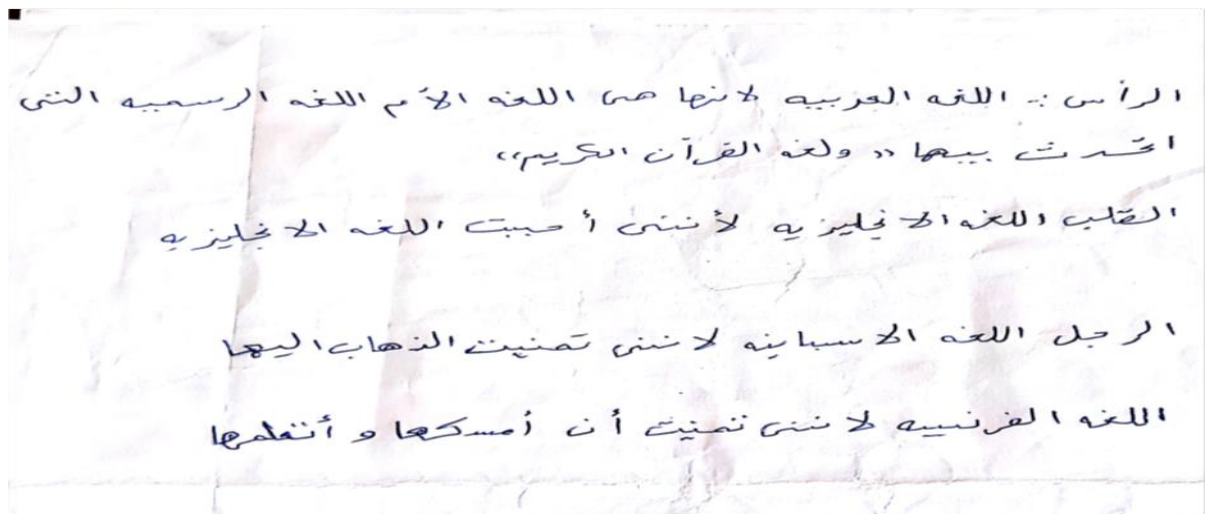 الرأس :- اللغه العربيه لانها هى اللغه الأم اللغه الرسميه التى
اتحدث بيها "ولغه القرآن الكريم"
القلب اللغه الانجليزيه لأننى أحببت اللغه الانجليزيه
الرجل اللغه الاسبانيه لاننى تمنيت الذهاب اليها
اللغه الفرنسيه لاننى تمنيت أن أمسكها و أتعلمها